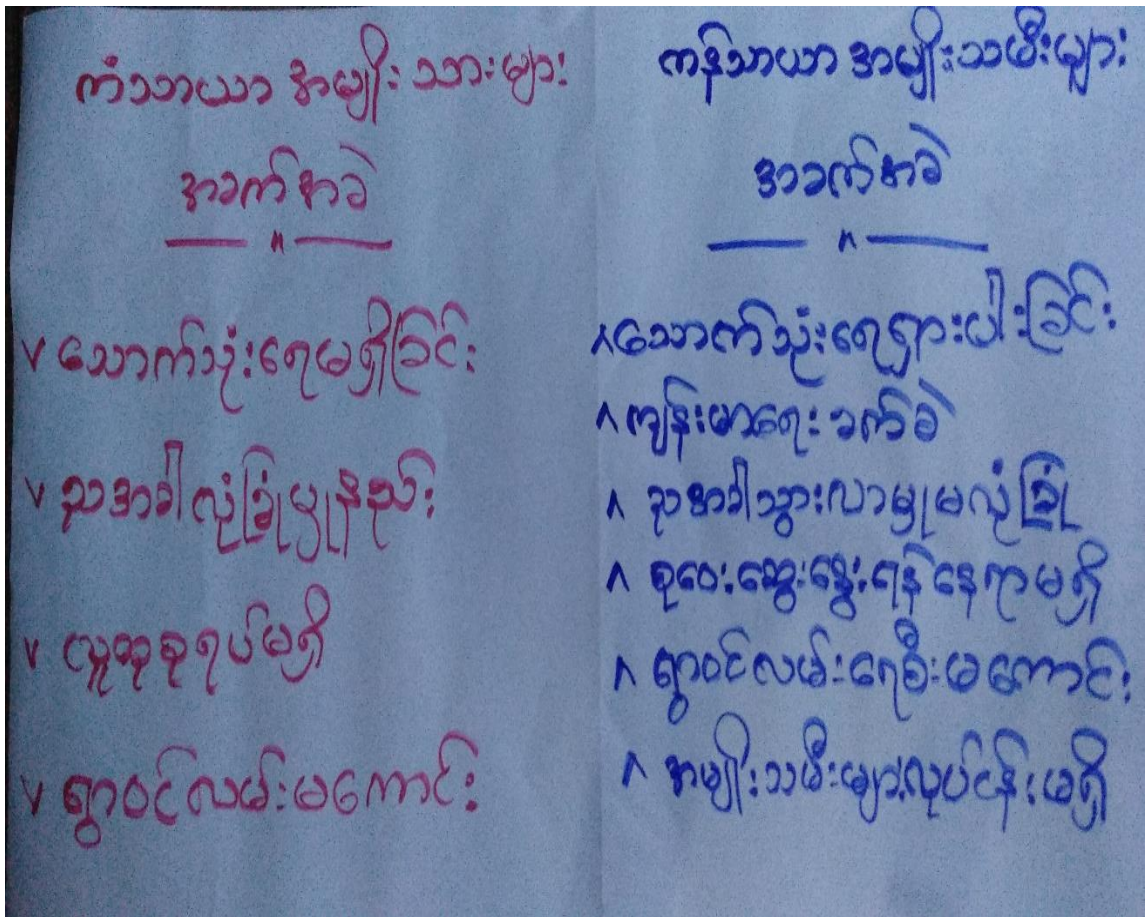 ကံသာယာ အမျိုးသားများ
အခက်အခဲ
သောက်သုံးရေမရှိခြင်း
ညအခါလုံခြုံမှုနည်း
လူထုစုရပ်မရှိ
ရွာဝင်လမ်းမကောင်း
ကန်သာယာ အမျိုးသမီးများ
အခက်အခဲ
သောက်သုံးရေရှားပါးခြင်း
ကျန်းမာရေးခက်ခဲ
ညအခါသွားလာမှုမလုံခြုံ
စုဝေးဆွေးနွေးရန်နေရာမရှိ
ရွာဝင်လမ်းရေစီးမကောင်း
အမျိုးသမီးများလုပ်ငန်းမရှိ